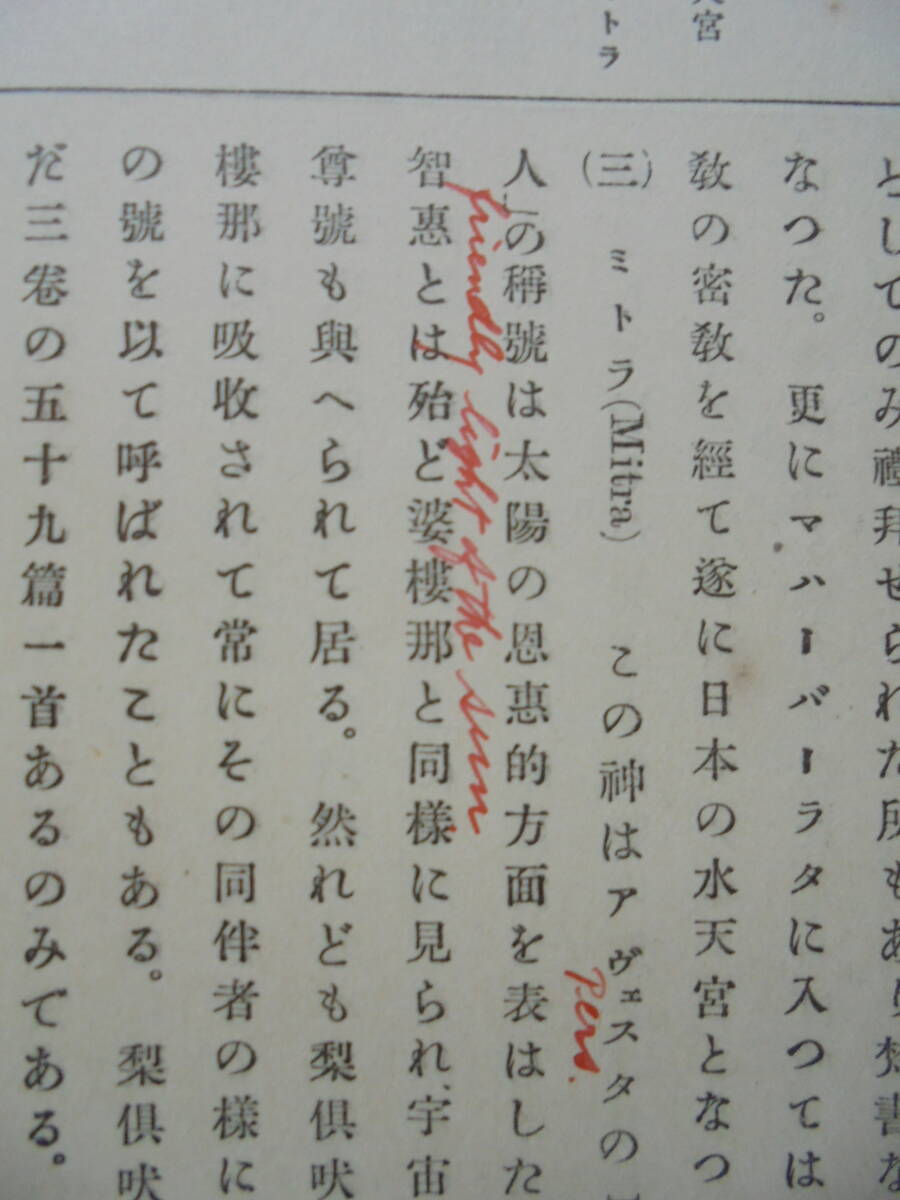 天宮
トラ
としてのみ禮拜せられた所もあり梵書な
なつた。更にマハーバーラタに入つては
敎の密敎を經て遂に日本の水天宮となつ
(三) ミトラ(Mitra) この神はアヴェスタの
Pers.
人」の稱號は太陽の恩惠的方面を表はした
friendly light of the sun
智惠とは殆ど婆樓那と同樣に見られ、宇宙
尊號も與へられて居る。然れども梨倶吠
樓那に吸收されて常にその同伴者の樣に
の號を以て呼ばれたこともある。梨倶吠
だ三卷の五十九篇一首あるのみである。